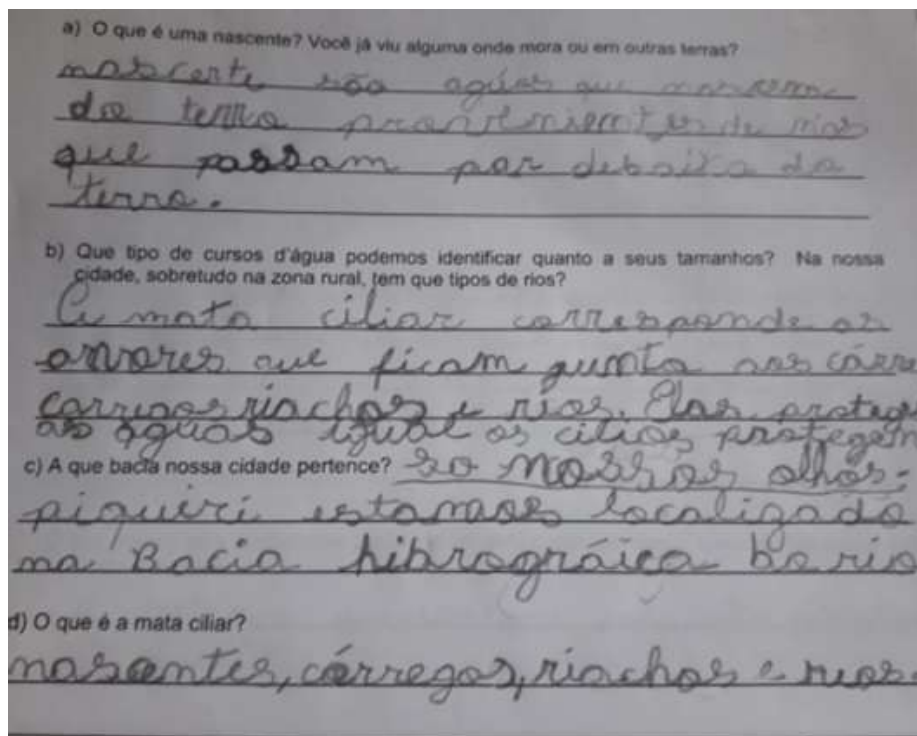 a) O que é uma nascente? Você já viu alguma onde mora ou em outras terras?
nascente são agúas que nascem
da terra de rios
que passam por debaixo da
terra.
b) Que tipo de cursos d'água podemos identificar quanto a seus tamanhos? Na nossa
cidade, sobretudo na zona rural, tem que tipos de rios?
A mata ciliar corresponde as
arvores que ficam gunto aos córre
corregos riachos e rios. Elas proteg
as aguas igual os cilios protegem
c) A que bacia nossa cidade pertence? so nossos olhos.
piquiri estamos localizado
na Bacia hibrográica bo rio
d) O que é a mata ciliar?
nasentes, córregos, riachos e rios.